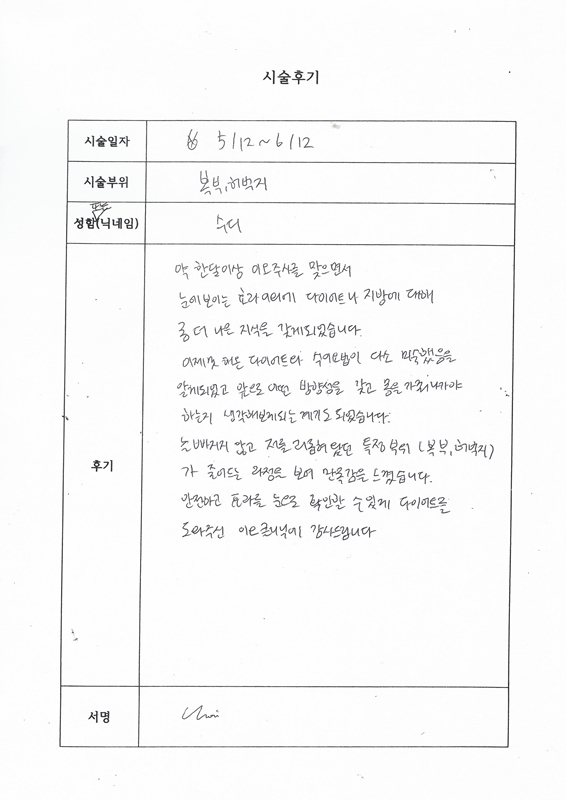 시술후기
시술일자
5/12 ~ 6/12
시술부위
복부, 허벅지
성함 또는 (닉네임)
수디
후기
약 한달이상 이오주사를 맞으면서
눈에보이는 효과이외에 다이어트나 지방에 대해
좀 더 나은 지식을 갖게되었습니다.
이제껏 해온 다이어트와 식이요법이 다소 미숙했음을
알게되었고 앞으로 어떤 방향성을 갖고 몸을 가꿔나가야
하는지 생각해보게되는 계기도 되었습니다.
잘 빠지지 않고 저를 괴롭혀 왔던 특정 부위 (복부, 허벅지)
가 줄어드는 과정을 보며 만족감을 느꼈습니다.
안전하고 효과를 눈으로 확인할 수 있게 다이어트를
도와주신 이오클리닉에 감사드립니다
서명